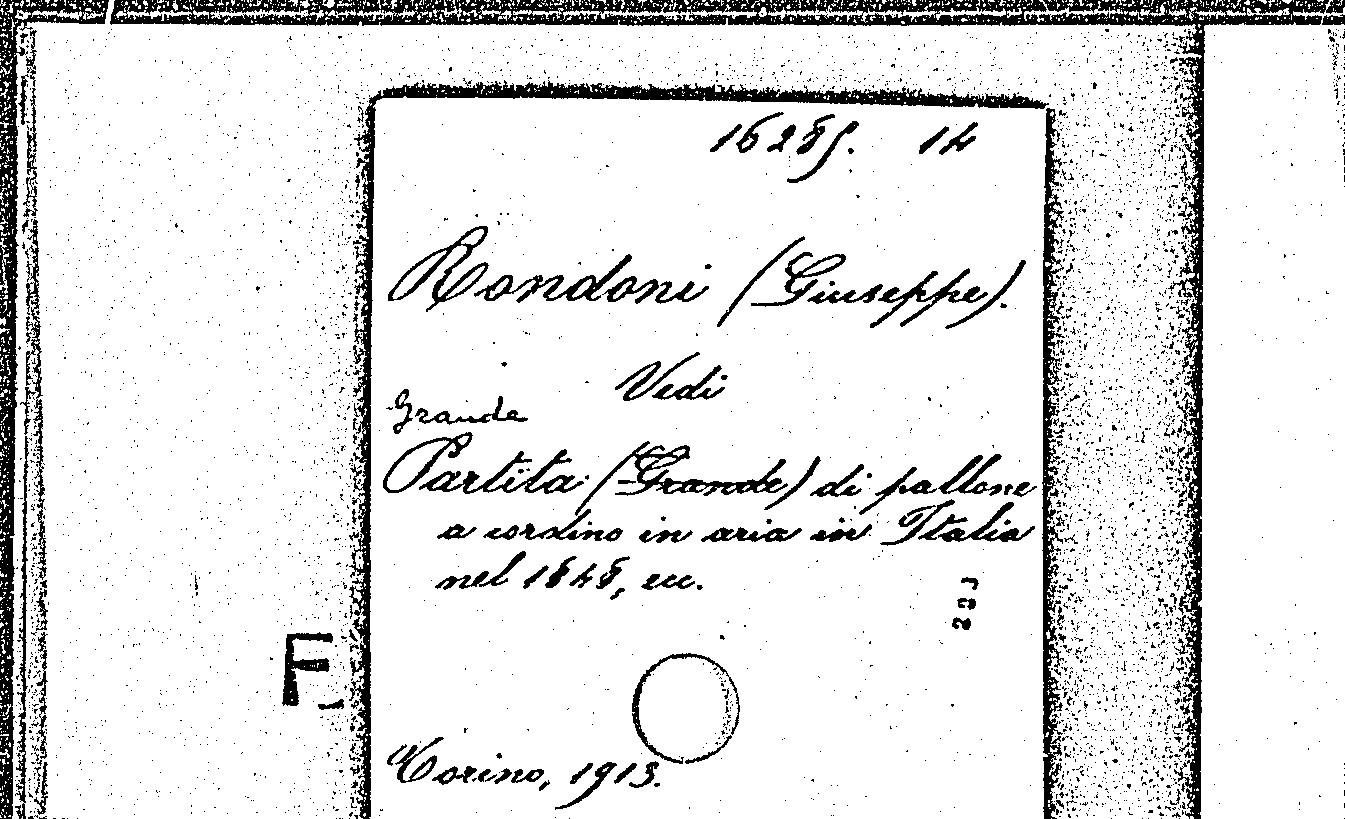 16285. 14
Rondoni (Giuseppe).
Vedi
Grande
Partita (Grande) di pallone
a cordino in aria in Italia
nel 1848, ecc.
203
F
Torino, 1913.